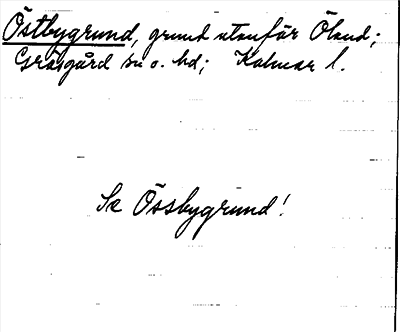 Östbygrund, grund utanför Öland;
Gräsgård sn o. hd; Kalmar l.
Se Össbygrund!